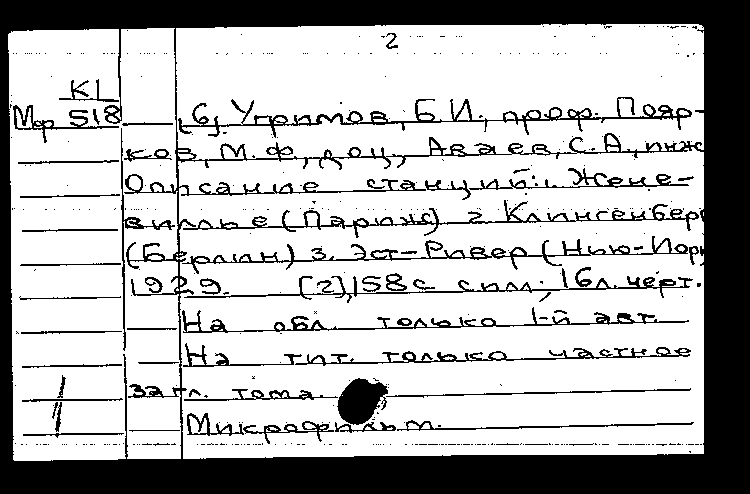 2
К1
Мф 518
[6] Угримов, Б.И., проф., Пояр-
ков, М.Ф., доц., Аваев, С.А., инж
Описание станций: 1. Жене-
вилье (Париж) 2. Клингенберг
(Берлин) 3. Эст-Ривер (Нью-Йорк
1929. [2], 158 с. с илл.; 16 л. черт.
На обл. только 1-й авт.
На тит. только частное
загл. тома.
Микрофильм.